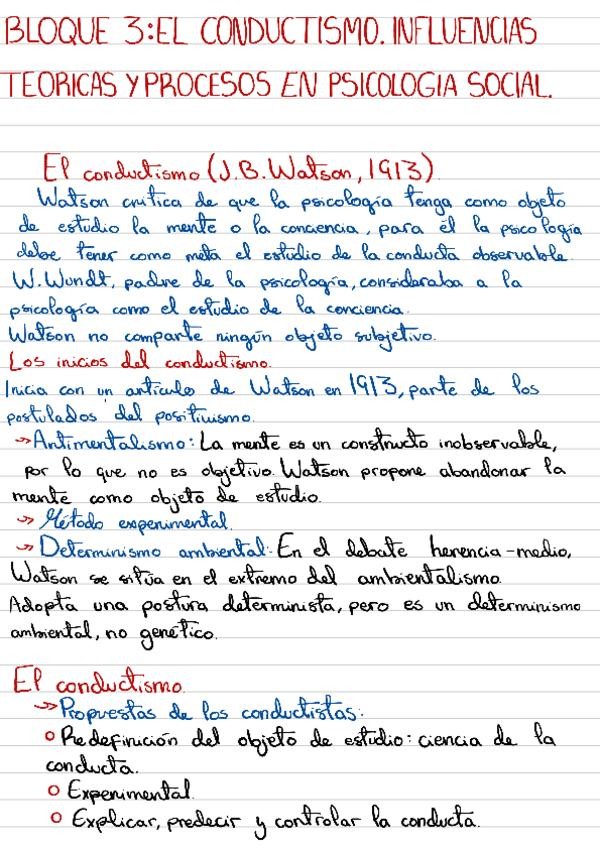 BLOQUE 3: EL CONDUCTISMO. INFLUENCIAS
TEORICAS Y PROCESOS EN PSICOLOGIA SOCIAL.
El conductismo (J.B. Watson, 1913)
Watson critica de que la psicología tenga como objeto
de estudio la mente o la conciencia, para él la psicología
debe tener como meta el estudio de la conducta observable.
W. Wundt, padre de la psicología, consideraba a la
psicología como el estudio de la conciencia.
Watson no comparte ningún objeto subjetivo.
Los inicios del conductismo.
Inicia con un artículo de Watson en 1913, parte de los
postulados del positivismo.
→Antimentalismo: La mente es un constructo inobservable,
por lo que no es objetivo. Watson propone abandonar la
mente como objeto de estudio.
→ Método experimental.
→ Determinismo ambiental: En el debate herencia-medio,
Watson se sitúa en el extremo del ambientalismo.
Adopta una postura determinista, pero es un determinismo
ambiental, no genético.
El conductismo.
→Propuestas de los conductistas:
○ Redefinición del objeto de estudio: ciencia de la
conducta.
○ Experimental.
○ Explicar, predecir y controlar la conducta.